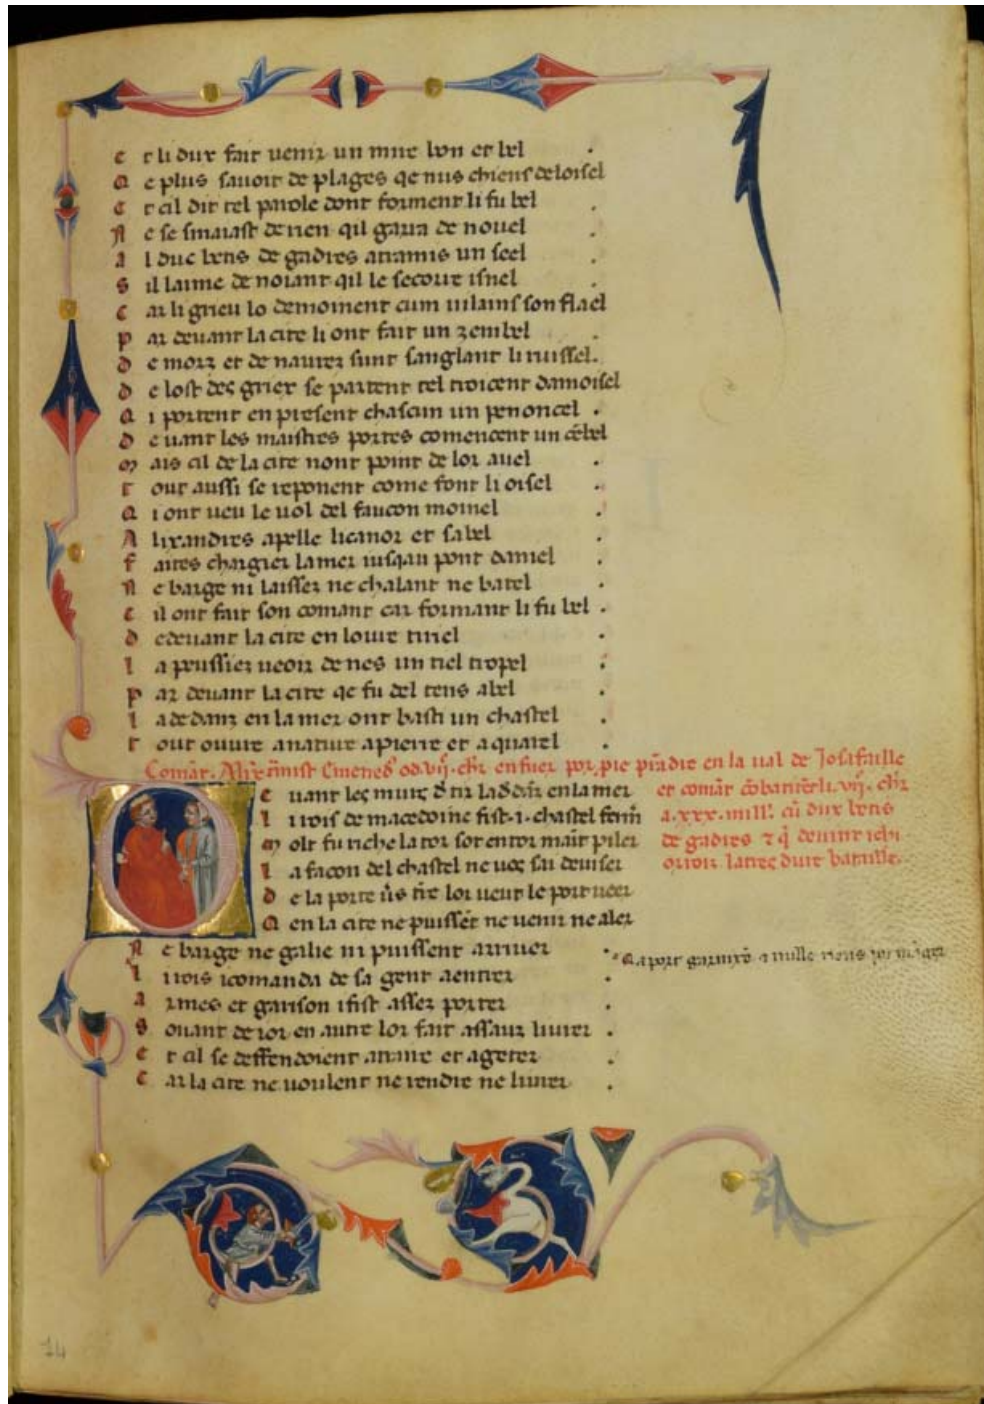 E t li dux fait uenir un mne bon et bel
Q e plus sauoit de plages qe nus chiens de loisel
E t cil dit tel parole dont forment li fu bel
N e se smaiast de rien qil gaura de nouel
A l duc betis de gadres atramis un seel
S il laime de noiant qil le secoure isnel
C ar li grieu lo demoinent cum uilains son flael
P ar deuant la cite li ont fait un zembel
D e morz et de naurez sunt sanglant li ruissel.
D e lost des griex se partent tel troicent damoisel
Q i portent en present chascun un penoncel
D euant les maistres portes comencent un cembel
M ais cil de la cite nont point de lor auel
T out aussi se reponent come font li oisel
Q i ont ueu le uol del faucon moinel
A lixandres apelle licanor et sabel
F aites chargier la mer iusqau pont daniel
N e barge ni laissez ne chalant ne batel
C il ont fait son comant car formant li fu bel
D edeuant la cite en loure tinel
L a peussiez ueoir de nes un tiel tropel
P ar deuant la cite qe fu del tens abel
L adedanz en la mer ont basti un chastel
T out ouure a nature a pierre et a quarel
Coment. Alix̄. tmist Emened᾽ od .vij. chr̄ en fuer por pie prādre en la ual de Josafaille
et coment cōbatiēt li .vij. chr̄
a .xxx. mill᾽. cū dux betis
de gadres 7 q̄ deuint ichi
bataille.
D euant les murs d̄ tir ladedāz en la mer
L i rois de macedoine fist .i. chastel ferm̄
M olt fu riche la tor sor en tor maint piler
L a facon del chastel ne uos sai deuiser
D e la porte ūs tire lor ueut le port ueer
Q en la cite ne puissēt ne uenir ne aler
N e barge ne galie ni puissent arriuer
Q a port
L i rois icomanda de sa gent a entrer
A rmes et garison i fist assez porter
S ouant de tor en autre lor fait assaut liurer
E t cil se deffendoient a traire et a geter
C ar la cite ne uoulent ne rendre ne liurer
14